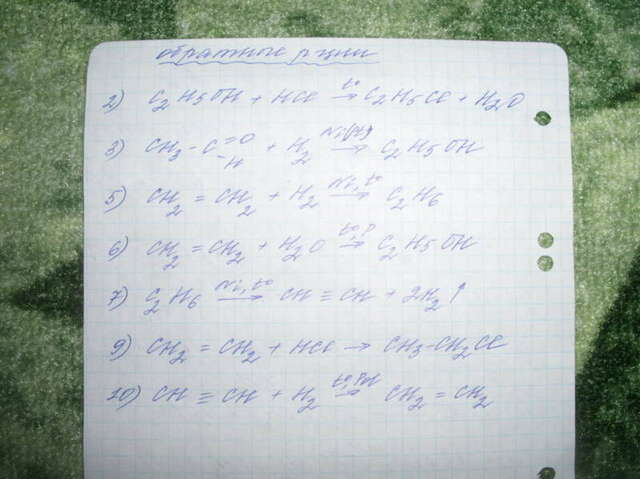 обратные р-ции
2) C2H5OH + HCl →(t°) C2H5Cl + H2O
3) CH3-C(=O)(-H) + H2 →(Ni) C2H5OH
5) CH2 = CH2 + H2 →(Ni, t°) C2H6
6) CH2 = CH2 + H2O →(t°, P) C2H5OH
7) C2H6 →(Ni, t°) CH ≡ CH + 2H2 ↑
9) CH2 = CH2 + HCl → CH3-CH2Cl
10) CH ≡ CH + H2 →(t°, Pd) CH2 = CH2